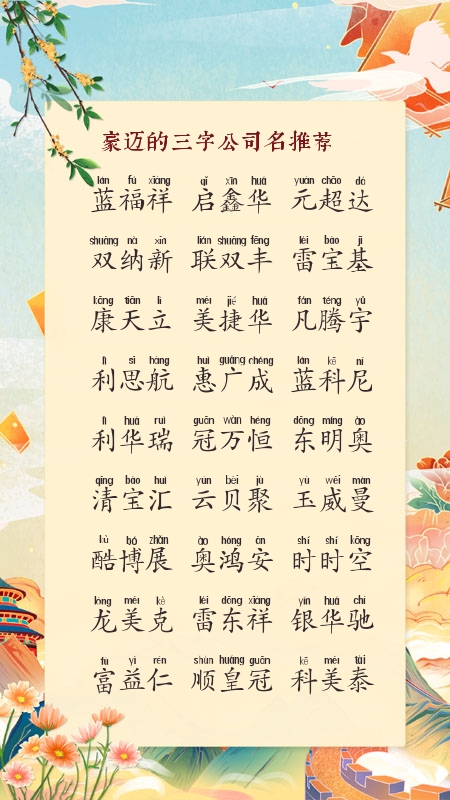 豪迈的三字公司名推荐
lán fú xiáng qǐ xīn huá yuán chāo dá
蓝福祥 启鑫华 元超达
shuāng nà xīn lián shuāng fēng léi bǎo jī
双纳新 联双丰 雷宝基
kāng tiān lì měi jié huá fán téng yǔ
康天立 美捷华 凡腾宇
lì sī háng huì guǎng chéng lán kē ní
利思航 惠广成 蓝科尼
lì huá ruì guān wàn héng dōng míng ào
利华瑞 冠万恒 东明奥
qīng bǎo huì yún bèi jù yù wēi màn
清宝汇 云贝聚 玉威曼
kù bó zhǎn ào hóng ān shí shí kōng
酷博展 奥鸿安 时时空
lóng měi kè léi dōng xiáng yín huá chí
龙美克 雷东祥 银华驰
fù yì rén shùn huáng guān kē měi tài
富益仁 顺皇冠 科美泰